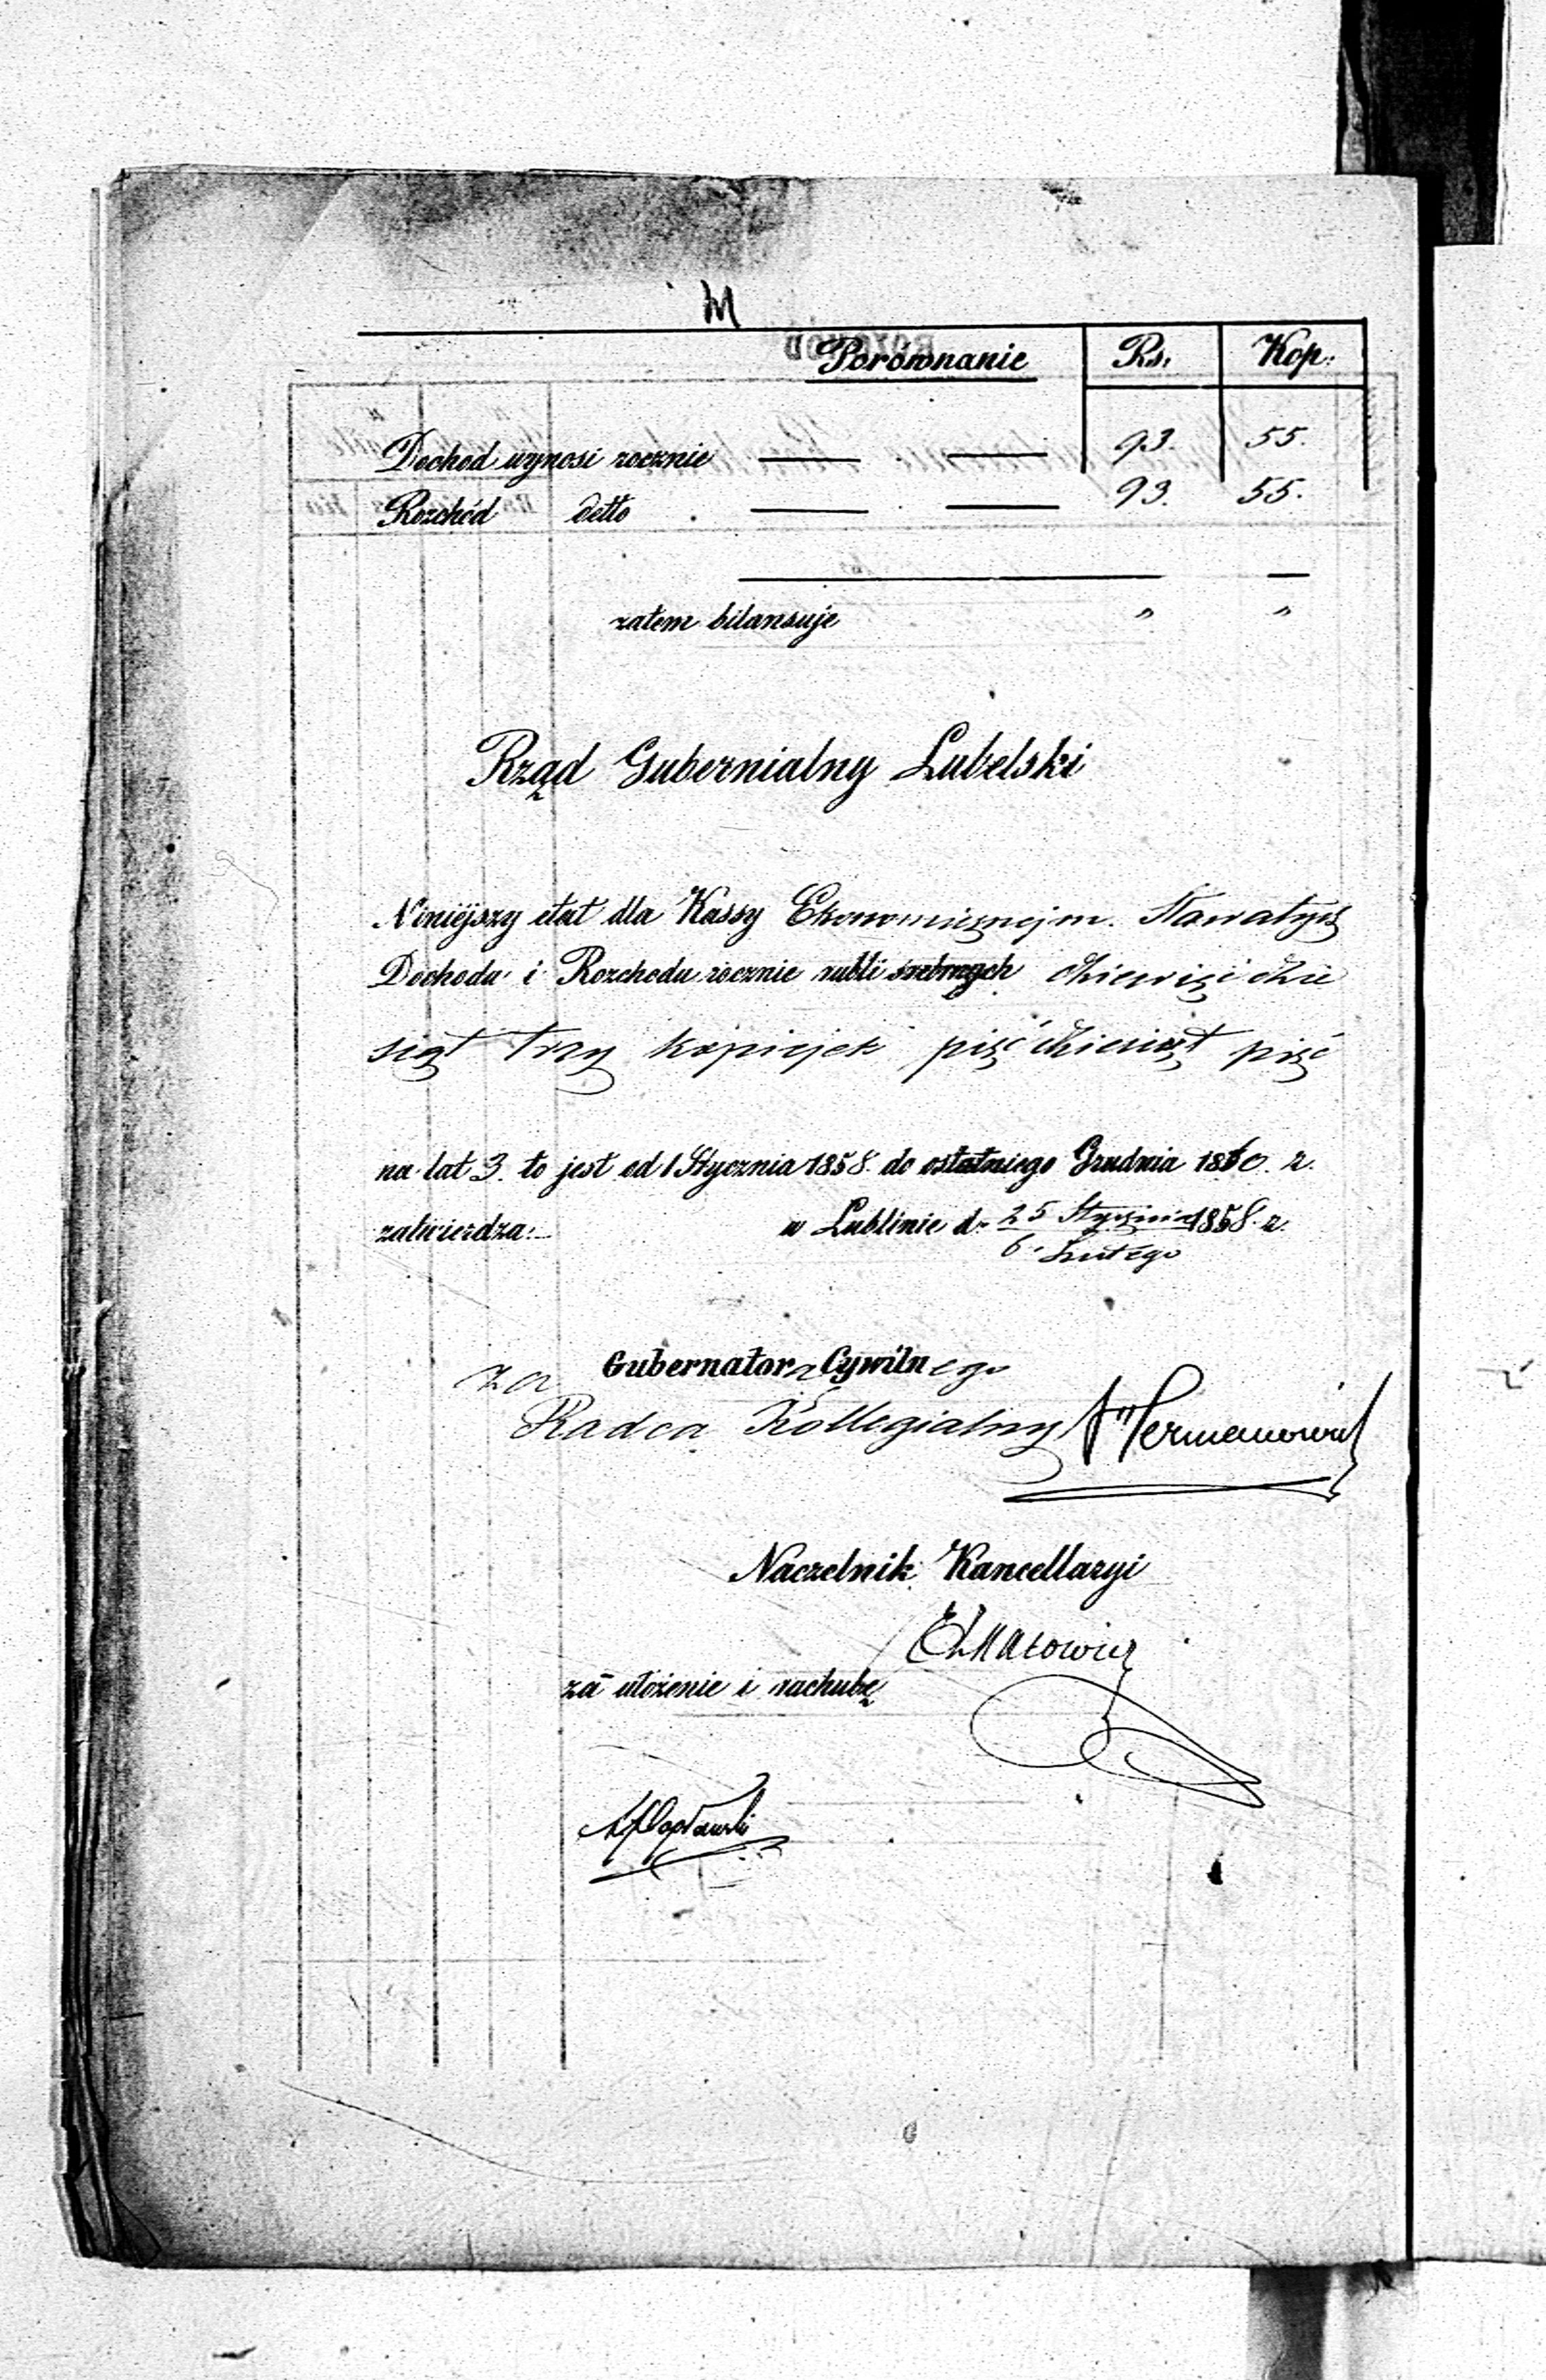 Porównanie Rs. Kop.
Dochod wynosi rocznie 93. 55.
Rozchód detto 93. 55.
zatem bilansuje " "
Rząd Gubernialny Lubelski
Niniejszy etat dla Kassy Ekonomicznej m. Sławatycz
Dochodu i Rozchodu rocznie rubli srebrnych dziewięć dzie
siąt trzy kopiejek pięćdziesiąt pięć
na lat 3. to jest od 1 Stycznia 1858. do ostatniego Grudnia 1860. r.
zatwierdza.
w Lublinie d. 25 Stycznia 1858. r.
6. Lutego
za Gubernatora Cywilnego
Radca Kollegialny Hermanowicz
Naczelnik Kancellaryi
za ułożenie i rachubę